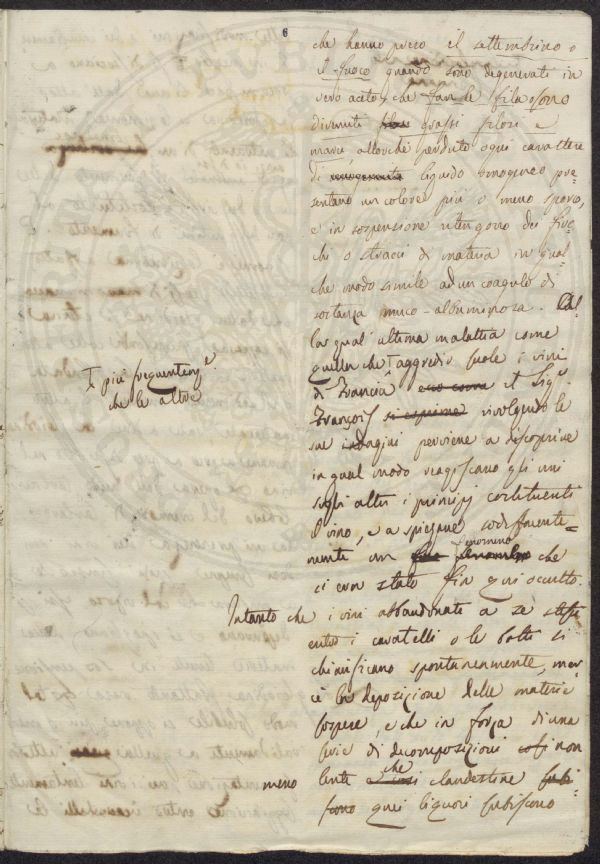 6
che hanno preso il settembrino o
il fuoco quando sono degenerati in
vero aceto, che fan le fila o sono
divenuti grassi filosi e
marci allorchè perduto ogni carattere
di liquido omogineo pre-
sentano un colore più o meno sporco,
e in sospensione ritengono dei fioc-
chi o stracci di materia in qual-
che modo simile ad un coagulo di
sostanza muco-albuminosa. Al-
la qual' ultima malattia come
quella che aggredir suole i vini
più frequentem.e
che le altre
di Francia il Sig.r
François si esprime rivolgendo le
sue indagini perviene a discoprire
in qual modo reagiscano gli uni
sugli altri i principj costituenti
il vino, e a spiegare
un fenomeno che
ci era stato fin qui occulto.
Intanto che i vini abbandonati a se stessi
entro i caratelli o le botti si
chiarificano spontaneamente, mer-
cè la deposizione delle materie
sospese, e che in forza di una
serie di decomposizioni non
meno lente che clandestine subi-
scono quei liquori subiscono